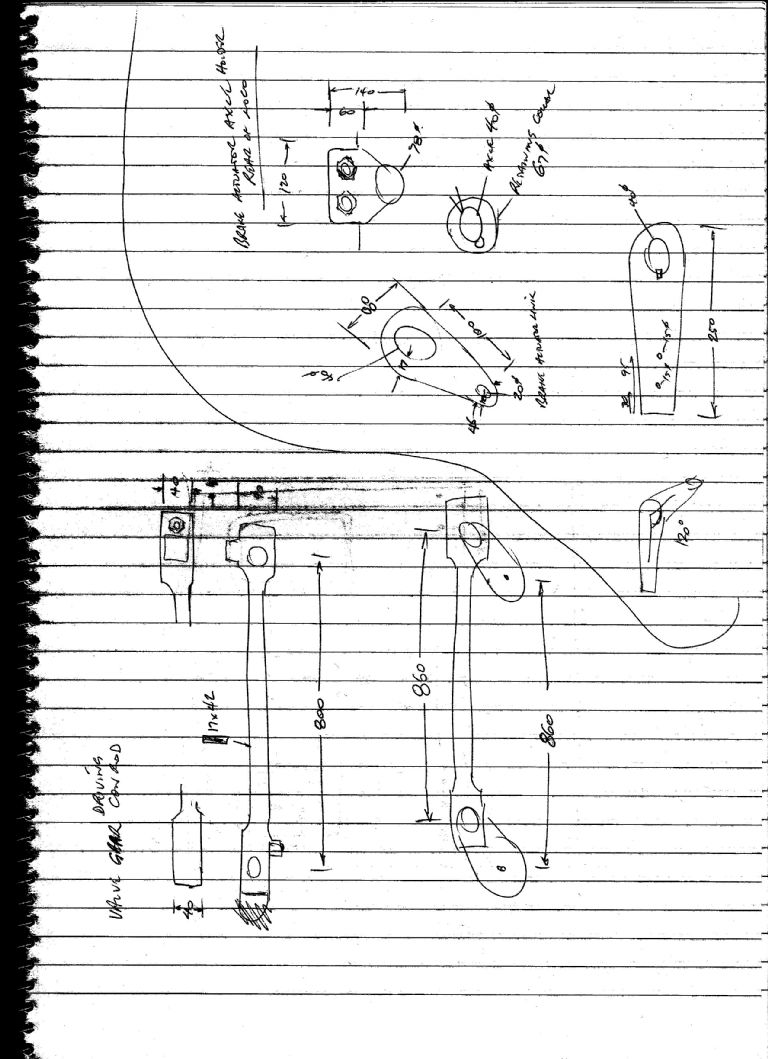 BRAKE ACTUATOR AXLE HOLDER
REAR OF LOCO
140
120
78ø
AXLE 40ø
RETAINING COLLAR
67ø
40ø
250
95
120°
BRAKE ACTUATOR LINK
20ø
46
80
VALVE GEAR DRIVING
CON ROD
40
40
17x42
800
860
860